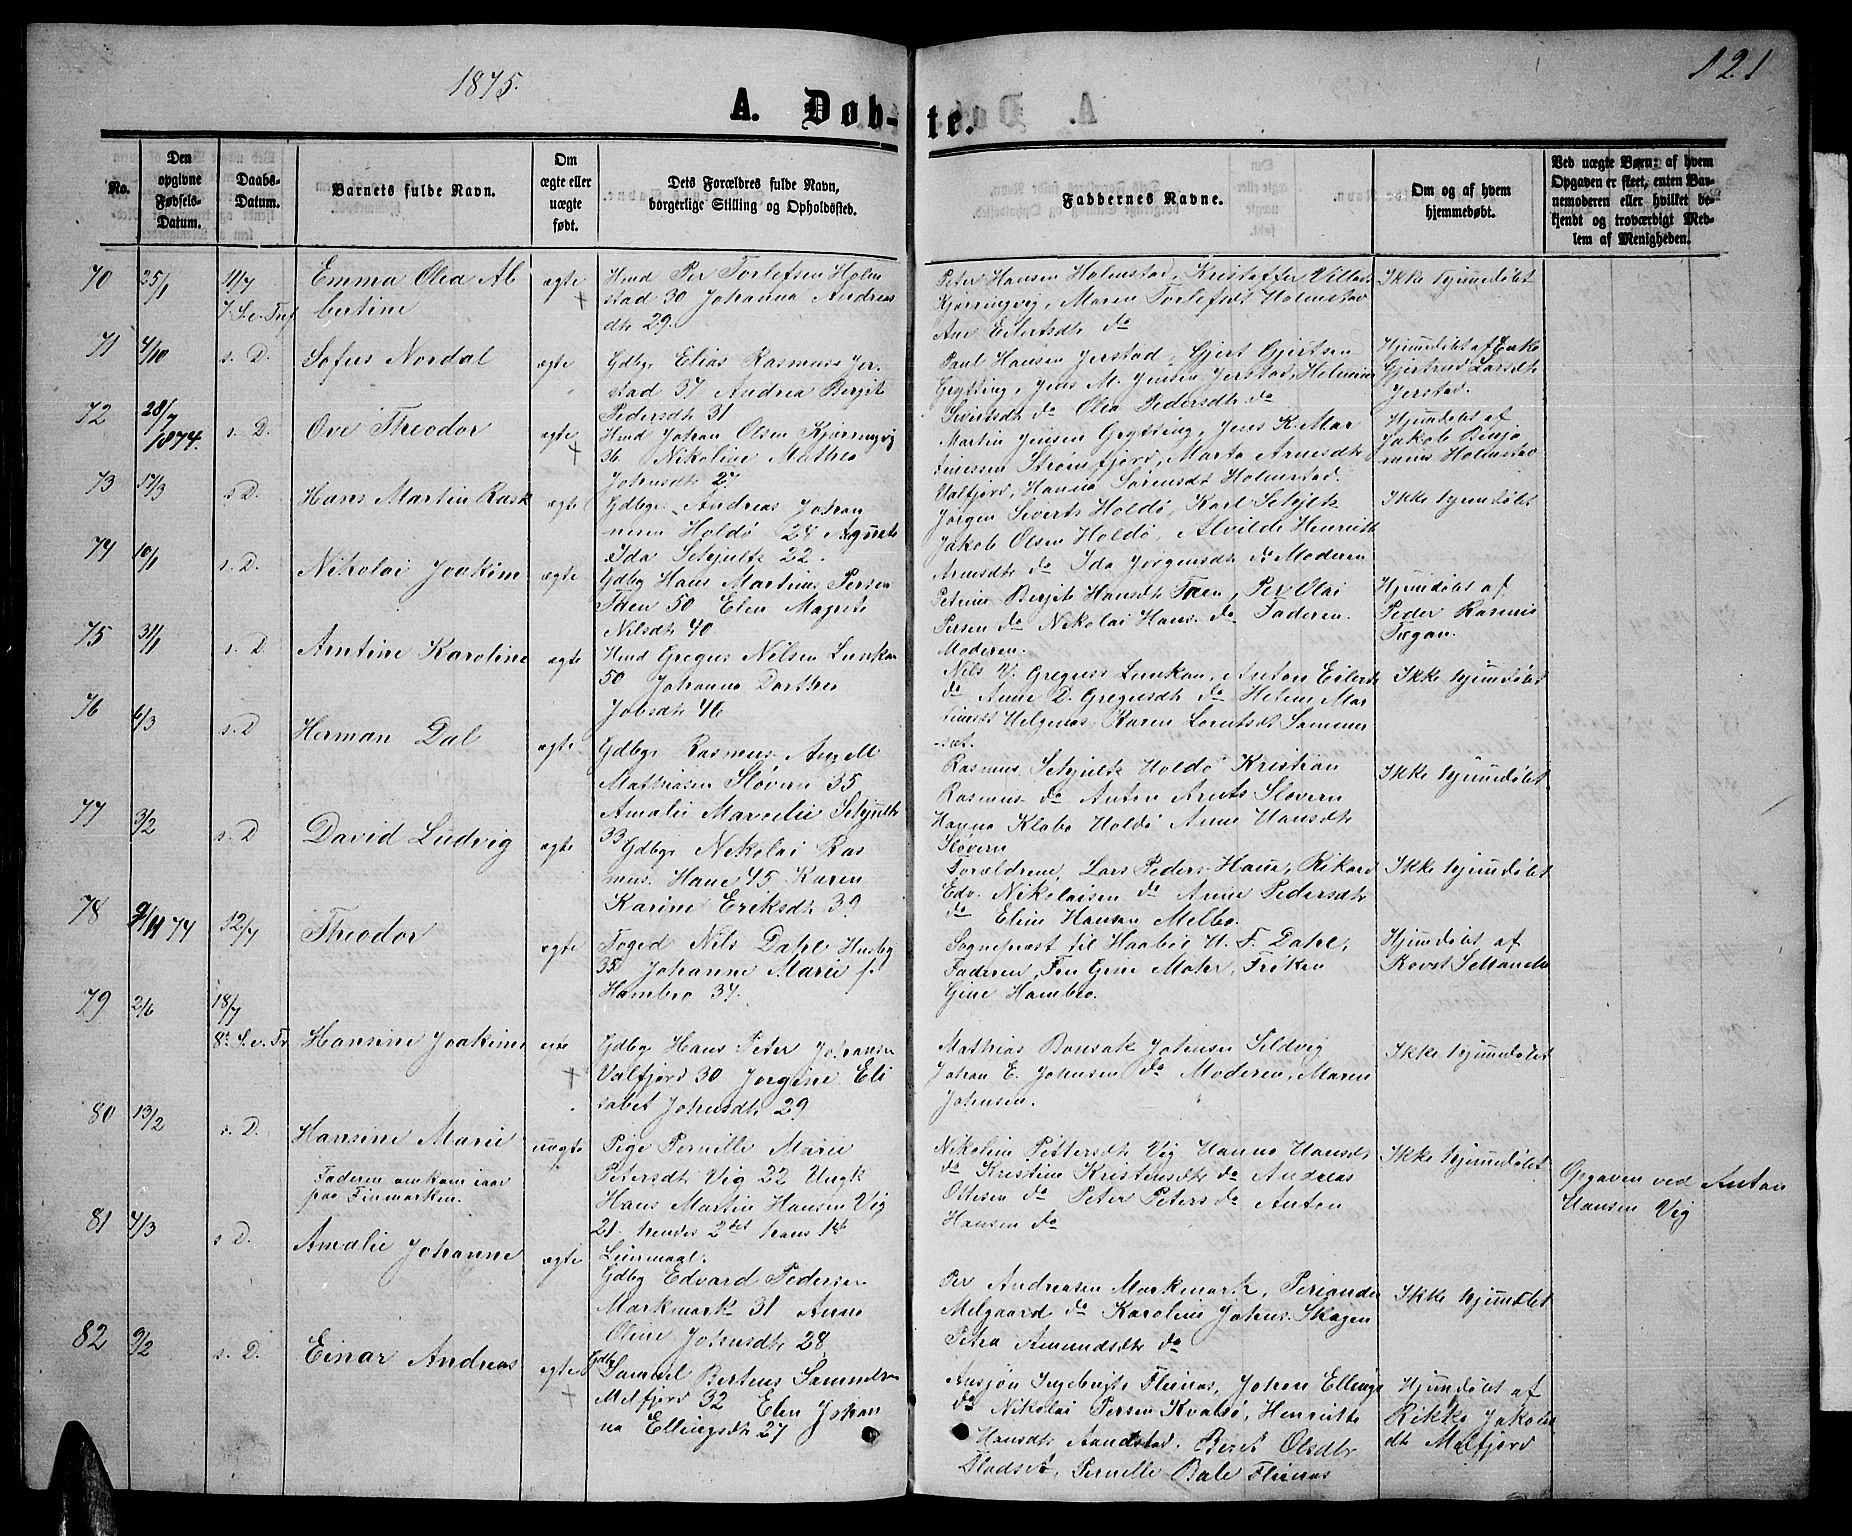 1875.
121
A. Døb-te.
No.
Den opgivne Fødsels-Datum.
Daabs-Datum.
Barnets fulde Navn.
Om ægte eller uægte født.
Dets Forældres fulde Navn, borgerlige Stilling og Opholdssted.
Faddernes Navne.
Om og af hvem hjemmedøbt.
Ved uægte Børn: af hvem Opgaven er skeet, enten Barnemoderen eller hvilket bekjendt og troværdigt Medlem af Menigheden.
70 25/1 4/7 Emma Olea Al ægte Hmd Per Torlefsen Holm
7. S. e. Tref bertine stad 30 Johanna Andreas
dtr 29.
Peter Hansen Holmstad, Kristoffer Villads
Kjørringvig, Maren Torlefsdt Holmstad
Ane Eilertsdtr do
Ikke hjemmedøbt
71 4/10 s. D. Sofus Nordal ægte Gdbgr Elias Rasmuss Jer
stad 37 Andrea Bergit
Pedersdtr 31
Paul Hansen Jerstad Gjert Gjertsen
Grytting, Jens M. Jensen Jerstad,
Sivertsdtr do Olea Pedersdtr do
Hjemmedøbt af Enke
Gjertrud Larsdtr
Jerstad.
72 28/7 1874. s. D. Ove Theodor ægte Hmd Johan Olsen Kjørringvig
36 Nikoline Mathea
Johnsdtr 27
Martin Jensen Grytting, Jens K. Mar
tinessen Strømfjord, Marta Arnesdtr
Valfjord, Hanna Sørensdt Holmstad.
Hjemmedøbt af
Jakob Benja
mins Holmstad
73 17/3 s. D. Hans Martin Rask ægte Gdbgr Andreas Johan
nesen Holdø 28
Ida Schjultz 22.
Jørgen Siverts Holdø, Karl Schjelz
Jakob Olsen Holdø, Alvilde Henriette
Arnesdtr do Ida Jørgensdtr do Moderen
Ikke hjemmedøbt
74 10/1 s. D. Nikolai Joakim ægte Gdbg Hans Martinus Persen
Taen 50 Elen Magrete
Nilsdtr 40
Petrine Bergite Hansdtr Taen, Per Olai
Persen do Nikolai Hans. do Faderen.
Moderen.
Hjemmedøbt af
Peder Rasmus
75 31/1 s. D Arntine Karoline ægte Hmd Gregus Nilsen Lunkan
50 Johanna Dorthea
Jobsdtr 46
Nils V. Greguss Lunkan, Anton Eilerts
do Anne D. Gregusdtr do Helene Mar
tinusdt Helgenæs, Karen Lorntsdt Sommer
-set.
Ikke hjemmedøbt
76 6/3 s. D Herman Dal ægte Gdbgr Rasmus Angell
Mathiasen Slovern 35
Amalie Marselie Schjultz
33
Rasmus Schjultz Holdø Kristian
Rasmus do Anton Arnts Slovern
Hanna Klabo Holdø Anne Hansdtr
Slovern
Ikke hjemmedøbt
77 3/2 s. D David Ludvig ægte Gdbgr Nikolai Ras
mus. Haue 45 Karen
Karine Eriksdtr 39
Forældrene, Lars Peders. Haue, Rikard
Edv. Nikolaisen do Anne Pedersdtr
do Eline Hansen Melbo.
Ikke hjemmedøbt
78 9/11 74 12/7 Theodor ægte Foged Nils Dahl Husby
35 Johanne Marie f.
Hambro 34.
Sognepræst til Haabøl H. F. Dahl,
Faderen, Fru Gine Mohr, Frøken
Gine Hambro.
Hjemmedøbt af
79 2/6 18/7 8. S. e. Tr. Hansine Joakime ægte Gdbg Hans Peter Johansen
Valfjord 30 Jørgine Eli
sabet Johnsdtr 29
Mathias Bonsak Johnsen Sildvig
Johan E. Johnsen do Moderen, Maren
Johnsen.
Ikke hjemmedøbt
80 13/2 s. D. Hansine Marie uægte Pige Pernille Marie
Faderen omkom iaar Petersdtr Vig 22 Ungk
paa Finmarken. Hans Martin Hansen Vig
21. hendes 2det hans 1ste
Leiermaal.
Nikoline Pettersdtr Vig Hanna Hansdt
do Kristine Kristensdtr do Andreas
Ottesen do Peter Peters do Anton
Hansen do
Ikke hjemmedøbt
Opgaven ved Anton
Hansen Vig
81 4/3 s. D. Amalie Johanne ægte Gdbg Edvard Pedersen
Markmark 31 Anne
Oline Johnsdtr 28
Per Andreasen Markmark, Periander
Melgaard do Karoline Johns. Skagen
Petra Amundsdtr do
Ikke hjemmedøbt
82 9/2 s. D. Einar Andreas ægte Gdbg Samuel Berteus Sammelsen
Melfjord 32 Elen Johan
na Ellingsdtr 27
Ansjøn Ingebrigts Flesnes, Johan Ellings
do Nikolai Persen Kvalsø, Henriette
Hansdtr Sandstad. Beret Olsdtr
Fladset, Pernille Flesnes
Hjemmedøbt af
Rikke Jakobs
dtr Melfjord